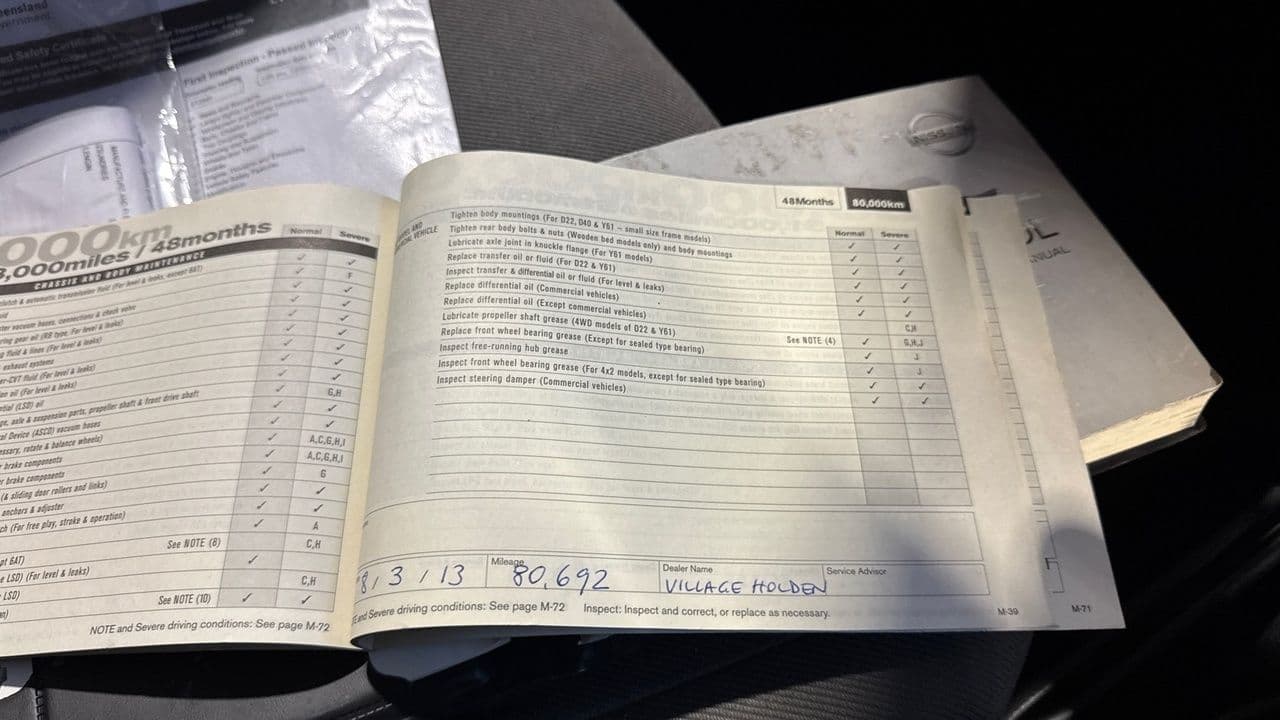 ensland
vernment
First Inspection - Passed Inspection
NISSAN
000km
8,000miles / 48months
Normal Severe
CHASSIS AND BODY MAINTENANCE
clutch & automatic transmission fluid (For level & leaks, except 6AT)
F
ster vacuum hoses, connections & check valve
ring gear oil (RB type, For level & leaks)
g fluid & lines (For level & leaks)
exhaust systems
er-CVT fluid (For level & leaks)
on oil (For level & leaks)
G,H
ntial (LSD) oil
ge, axle & suspension parts, propeller shaft & front drive shaft
al Device (ASCD) vacuum hoses
A,C,G,H,I
essary, rotate & balance wheels)
A,C,G,H,I
r brake components
G
r brake components
(& sliding door rollers and links)
anchors & adjuster
A
ch (For free play, stroke & operation)
C,H
See NOTE (8)
pt 6AT)
e LSD) (For level & leaks)
C,H
LSD)
See NOTE (10)
NOTE and Severe driving conditions: See page M-72
48Months 80,000km
Normal Severe
VEHICLE
Tighten body mountings (For D22, D40 & Y61 – small size frame models)
Tighten rear body bolts & nuts (Wooden bed models only) and body mountings
Lubricate axle joint in knuckle flange (For Y61 models)
Replace transfer oil or fluid (For D22 & Y61)
Inspect transfer & differential oil or fluid (For level & leaks)
Replace differential oil (Commercial vehicles)
C,H
Replace differential oil (Except commercial vehicles)
See NOTE (4) G,H,J
Lubricate propeller shaft grease (4WD models of D22 & Y61)
J
Replace front wheel bearing grease (Except for sealed type bearing)
J
Inspect free-running hub grease
Inspect front wheel bearing grease (For 4x2 models, except for sealed type bearing)
Inspect steering damper (Commercial vehicles)
8 / 3 / 13
Mileage
80,692
Dealer Name
VILLAGE HOLDEN
Service Advisor
and Severe driving conditions: See page M-72 Inspect: Inspect and correct, or replace as necessary.
M-39
M-71